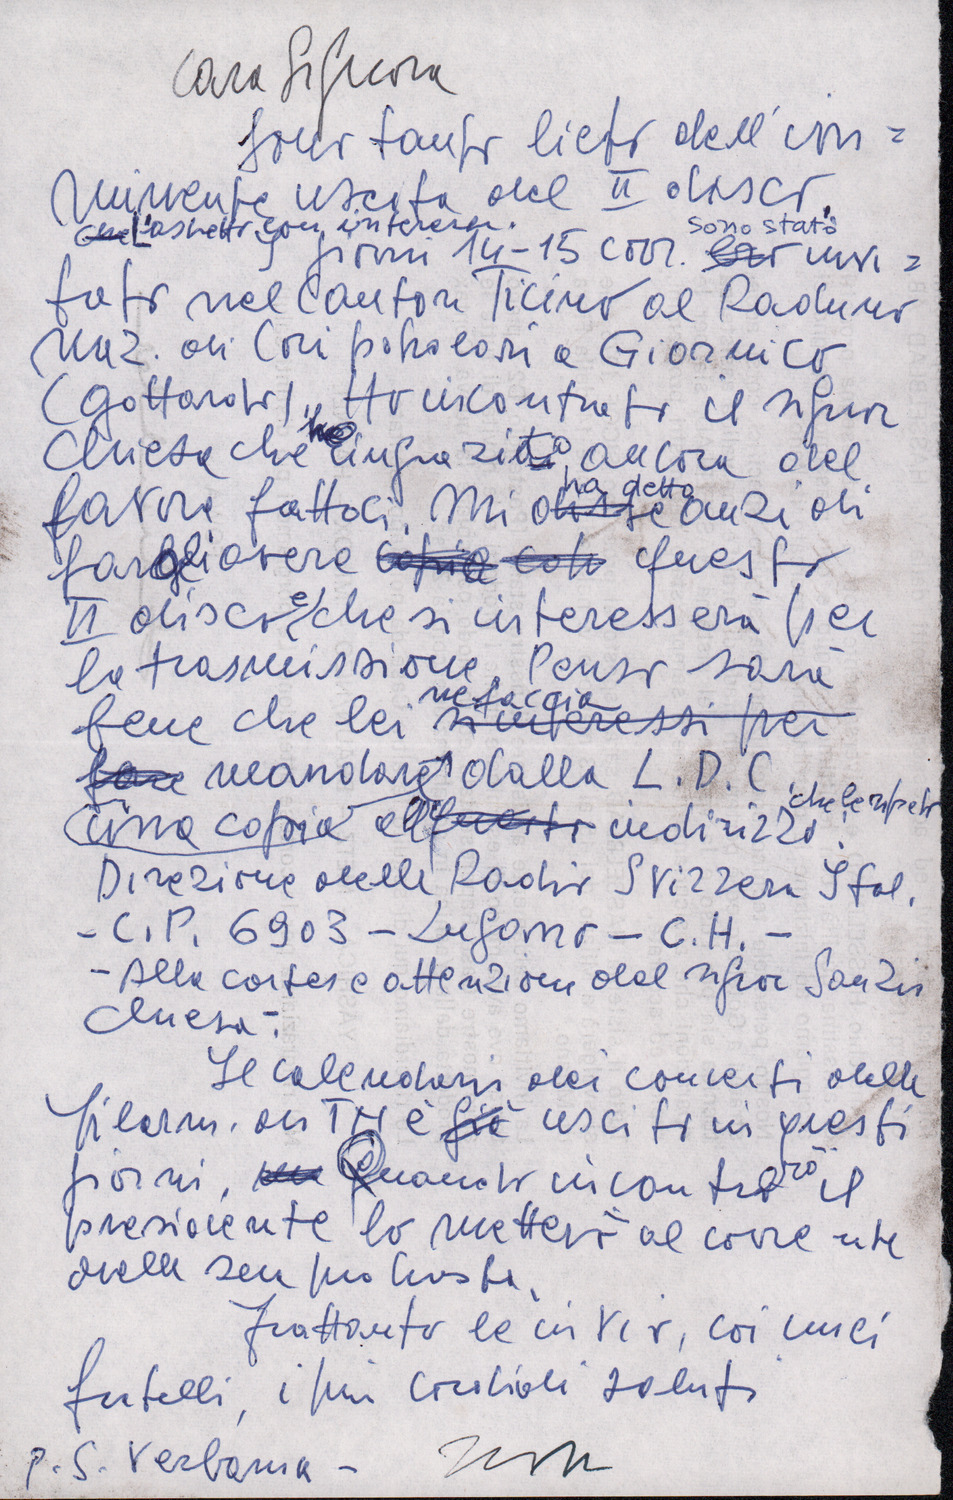 Cara Signora
Sono tanto lieto dell'im=
minente uscita del II disco.
L'aspetto con interesse.
sono stato
I giorni 14-15 corr. invi=
tato nel Canton Ticino al Raduno
Naz. di Cori popolari a Giornico
(Gottardo). Ho incontrato il signor
Chiesa che ho ringraziato ancora del
favore fattoci. Mi ha detto anzi di
fargli avere questo
II disco e che si interesserà per
la trasmissione. Penso sarà
bene che lei ne faccia
mandare dalla L.D.C.
una copia all' indirizzo che le ripeto:
Direzione della Radio Svizzera Ital.
- C.P. 6903 - Lugano - C.H. -
- Alla cortese attenzione del signor
Chiesa -.
Il calendario dei concerti della
Filarm. di TN è uscito in questi
giorni, Quando incontrerò il
presidente lo metterò al corrente
della sua proposta.
Frattanto le invio, coi miei
fratelli, i più cordiali saluti
P.S. Verbania -